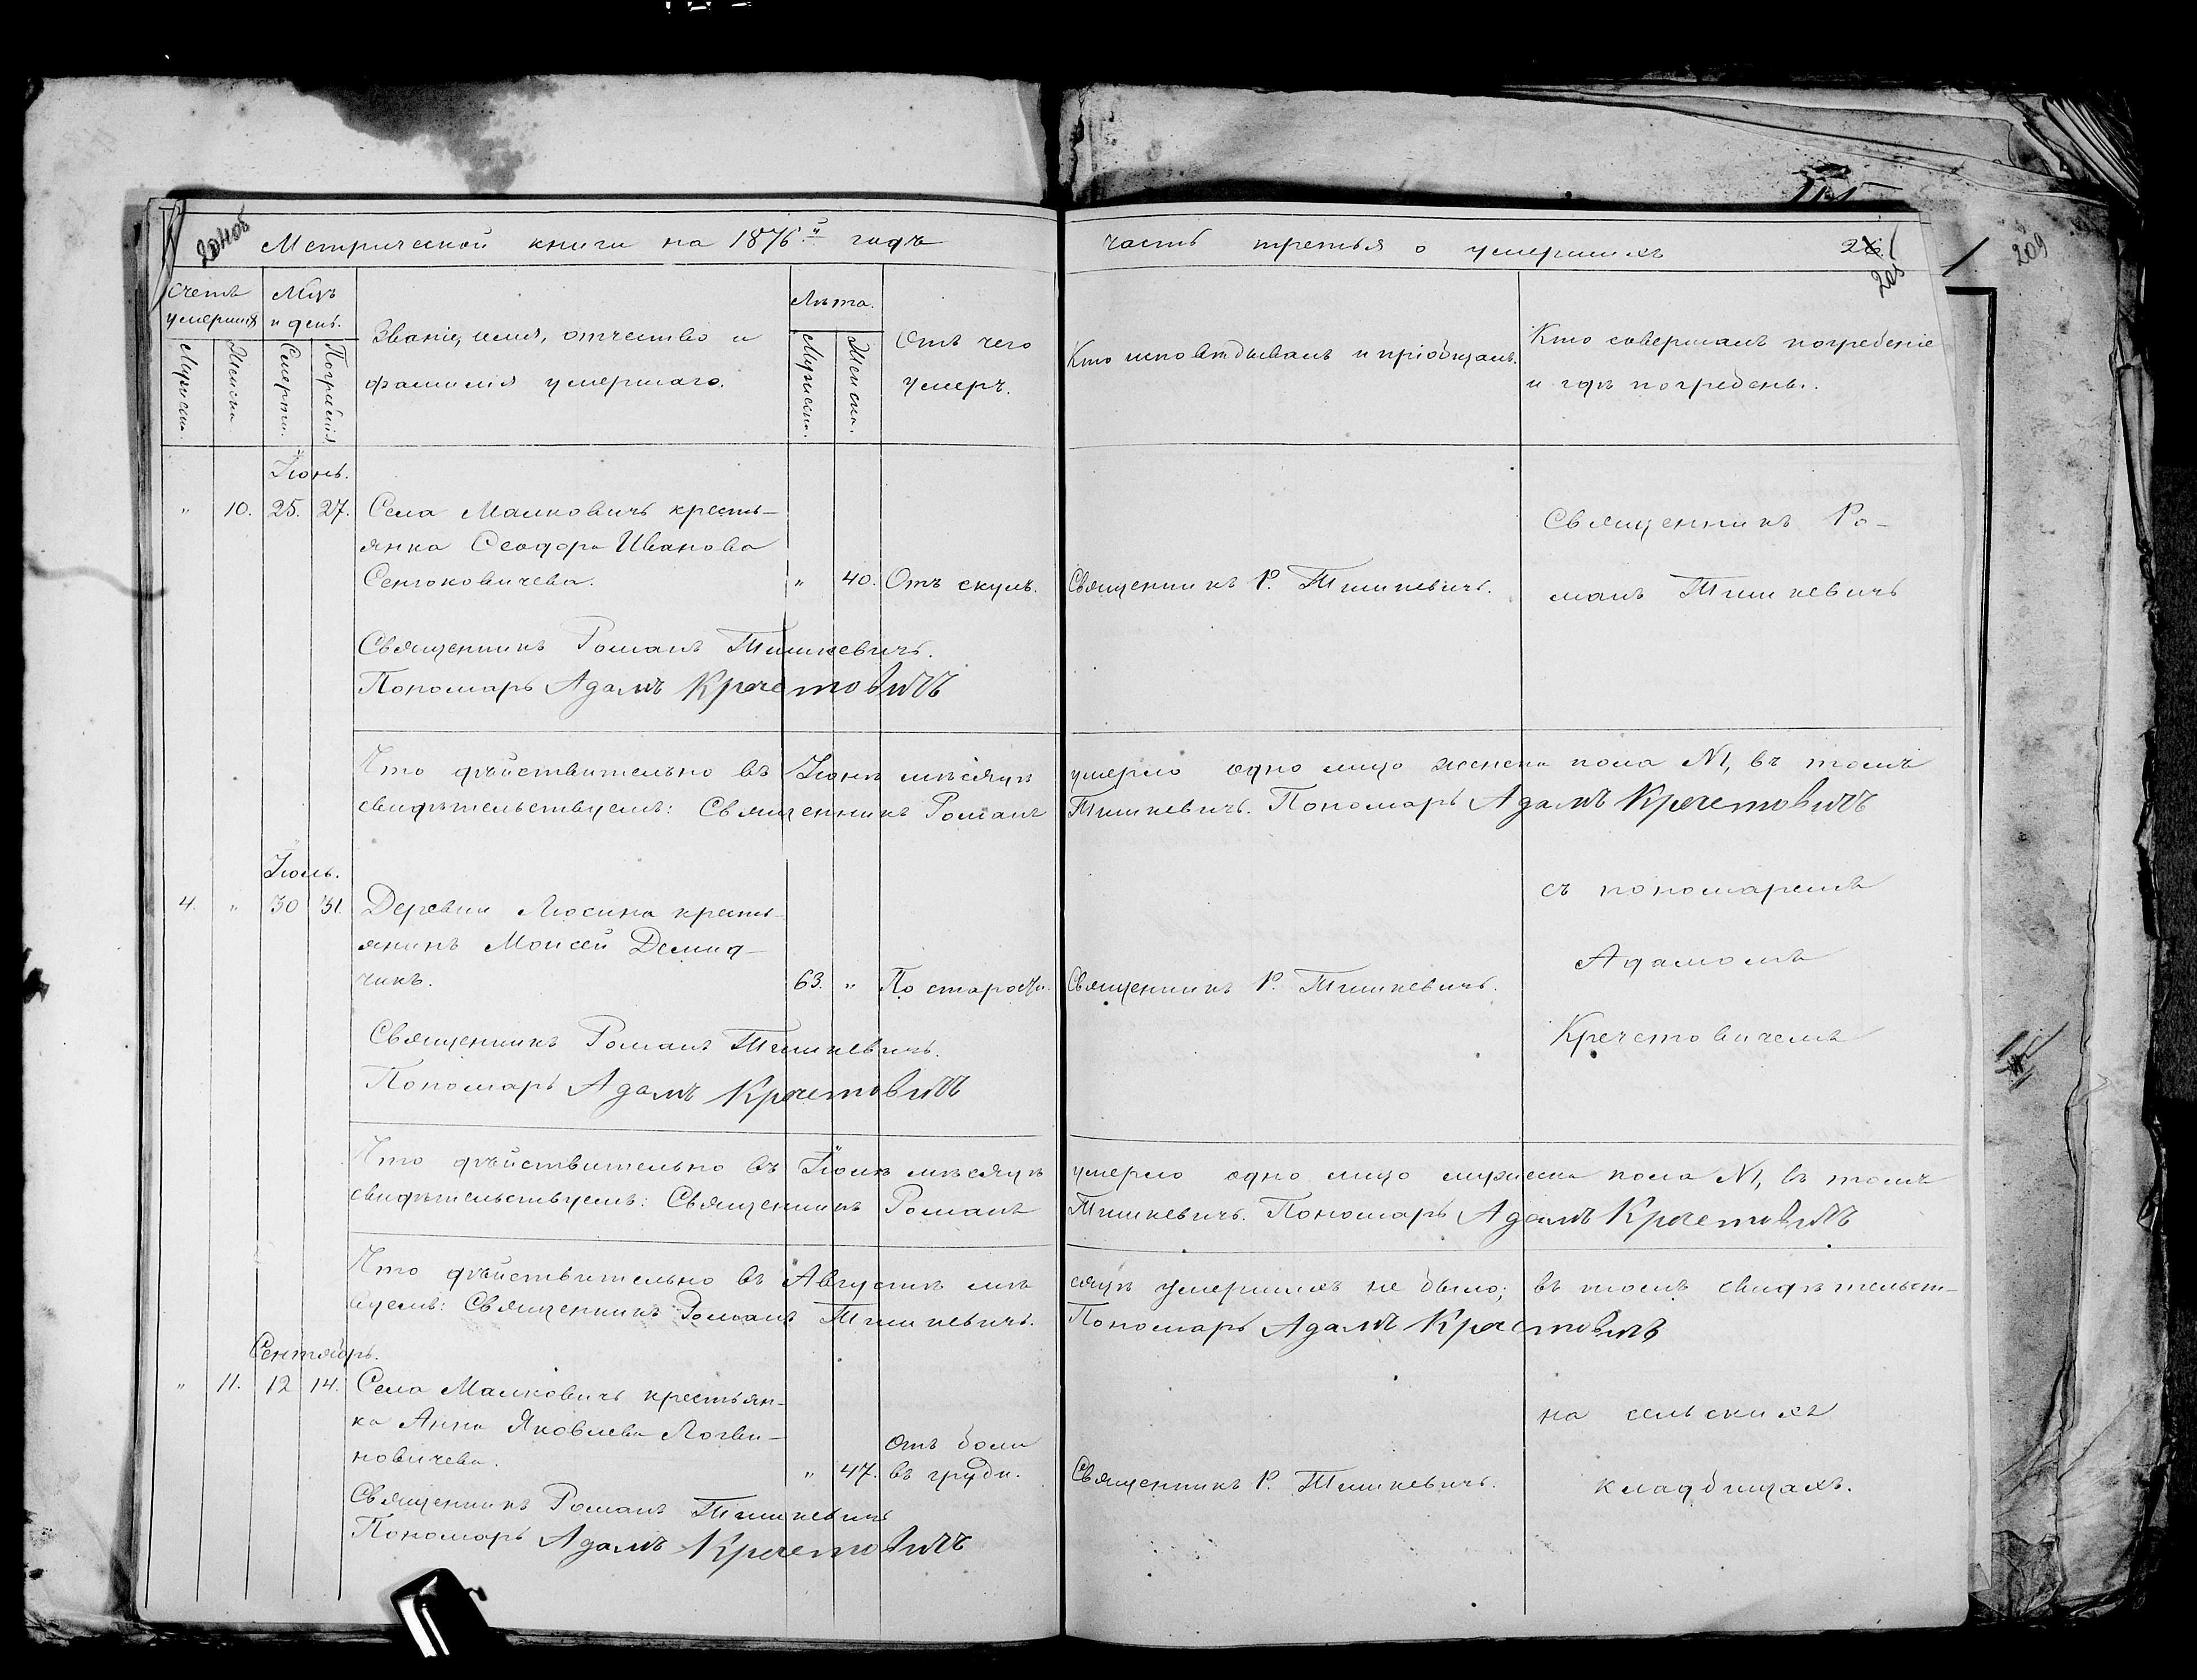 Метрической книги на 1876.й годъ
часть третья о умершихъ
209
Счетъ умершихъ
Мцъ и день.
Званіе, имя, отчество и
фамилія умершаго.
Лѣта.
Отъ чего
умеръ.
Кто исповѣдывалъ и пріобщалъ.
Кто совершалъ погребеніе
и гдѣ погребенъ.
Мужеска.
Женска
Смерти.
Погребенія
Мужеска.
Женска.
Іюнь.
" 10. 25. 27. Села Малковичъ кресть-
янка Ѳеодора Иванова
Сенюковичева. " 40. Отъ скулъ. Священникъ Р. Тишкевичъ.
Священникъ Ро-
манъ Тишкевичъ
Священникъ Романъ Тишкевичъ.
Пономарь Адамъ Кречетовичъ
Что дѣйствительно въ Іюнѣ мѣсяцѣ умерло одно лицо женска пола №1, въ томъ
свидѣтельствуемъ: Священникъ Романъ Тишкевичъ. Пономарь Адамъ Кречетовичъ
Іюль.
4. " 30 31. Деревни Люсина кресть-
янинъ Моисей Демид-
чикъ. 63. " По старости. Священникъ Р. Тишкевичъ.
съ пономаремъ
Адамомъ
Кречетовичемъ
Священникъ Романъ Тишкевичъ.
Пономарь Адамъ Кречетовичъ
Что дѣйствительно въ Іюлѣ мѣсяцѣ умерло одно лицо мужеска пола №1, въ томъ
свидѣтельствуемъ: Священникъ Романъ Тишкевичъ. Пономарь Адамъ Кречетовичъ
Что дѣйствительно въ Августѣ мѣ сяцѣ умершихъ не было; въ томъ свидѣтельст-
вуемъ: Священникъ Романъ Тишкевичъ. Пономарь Адамъ Кречетовичъ
Сентябрь.
" 11. 12 14. Села Малковичъ крестьян-
ка Анна Яковлева Логви-
новичева. " 47. Отъ боли
въ груди. Священникъ Р. Тишкевичъ.
на сельскихъ
кладбищахъ.
Священникъ Романъ Тишкевичъ
Пономарь Адамъ Кречетовичъ